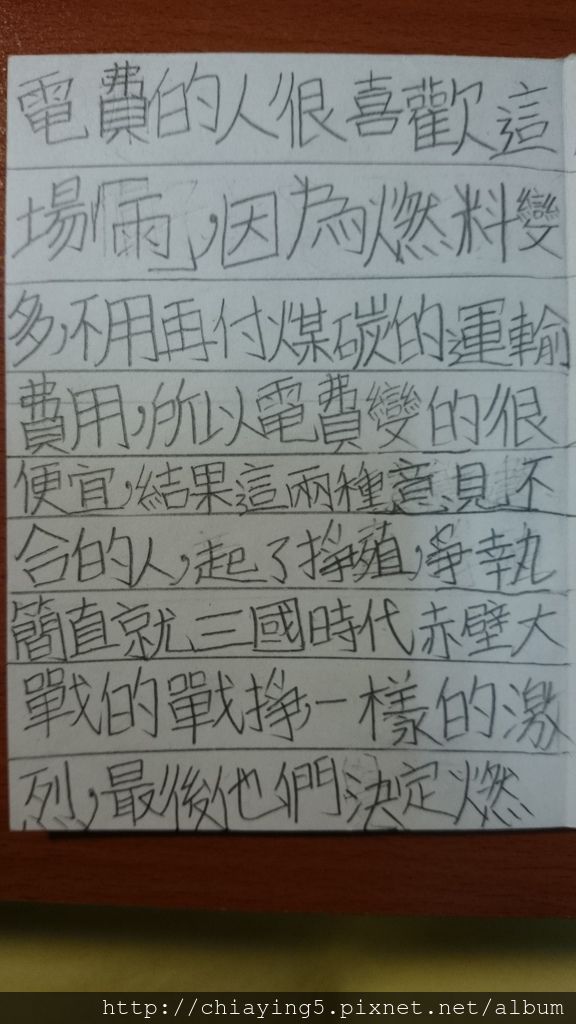 電費的人很喜歡這
場「雨」,因為燃料變
多,不用再付煤碳的運輸
費用,所以電費變的很
便宜,結果這兩種意見不
合的人,起了掙殖,爭執
簡直就三國時代赤壁大
戰的戰掙一樣的激
烈,最後他們決定燃
http://chiaying5.pixnet.net/album